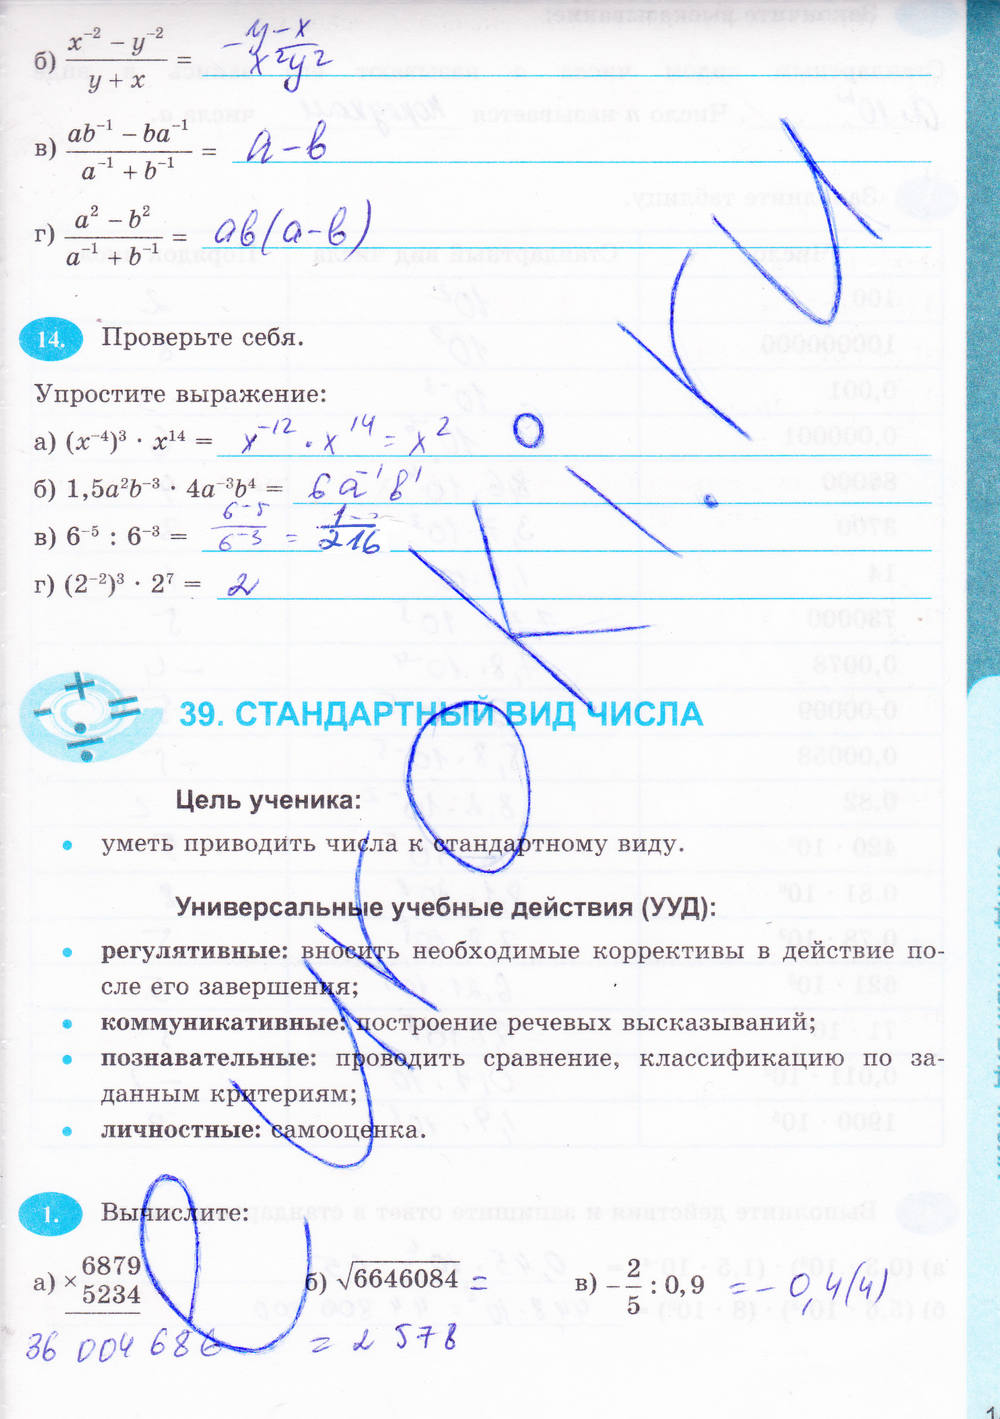 б) (x⁻² − y⁻²)/(y + x) = (y − x)/(x²y²)
в) (ab⁻¹ − ba⁻¹)/(a⁻¹ + b⁻¹) = a − b
г) (a² − b²)/(a⁻¹ + b⁻¹) = ab(a − b)
14. Проверьте себя.
Упростите выражение:
а) (x⁻⁴)³ · x¹⁴ = x⁻¹² · x¹⁴ = x²
б) 1,5a²b⁻³ · 4a⁻³b⁴ = 6a⁻¹b¹
в) 6⁻⁵ : 6⁻³ = 6⁻⁵/6⁻³ =
г) (2⁻²)³ · 2⁷ = 2
39. СТАНДАРТНЫЙ ВИД ЧИСЛА
Цель ученика:
• уметь приводить числа к стандартному виду.
Универсальные учебные действия (УУД):
• регулятивные: вносить необходимые коррективы в действие по-
сле его завершения;
• коммуникативные: построение речевых высказываний;
• познавательные: проводить сравнение, классификацию по за-
данным критериям;
• личностные: самооценка.
1. Вычислите:
а) × 6879 б) √6646084 = в) −2/5 : 0,9 = −0,4(4)
5234
36 004 686 = 2 578